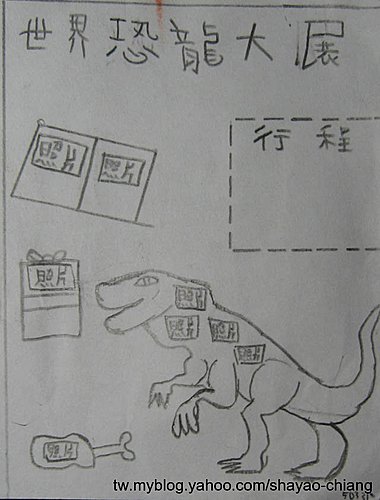 世界恐龍大展
行程
照片 照片
照片
照片
照片 照片
照片
照片
tw.myblog.yahoo.com/shayao-chiang